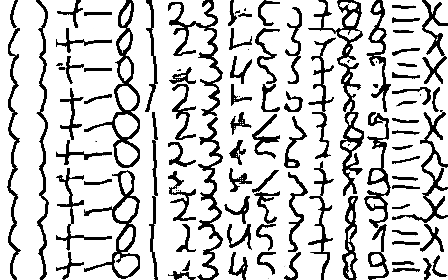 ( ) + - 0 1 2 3 4 5 5 7 8 9 = X
( ) + - 0 1 2 3 4 5 5 7 8 9 = X
( ) + - 0 1 2 3 4 5 5 7 8 9 = X
( ) + - 0 1 2 3 4 5 5 7 8 9 = X
( ) + - 0 1 2 3 4 5 5 7 8 9 = X
( ) + - 0 1 2 3 4 5 6 7 8 9 = X
( ) + - 0 1 2 3 4 5 5 7 8 9 = X
( ) + - 0 1 2 3 4 5 5 7 8 9 = X
( ) + - 0 1 2 3 4 5 5 7 8 9 = X
( ) + - 0 1 2 3 4 5 5 7 8 9 = X